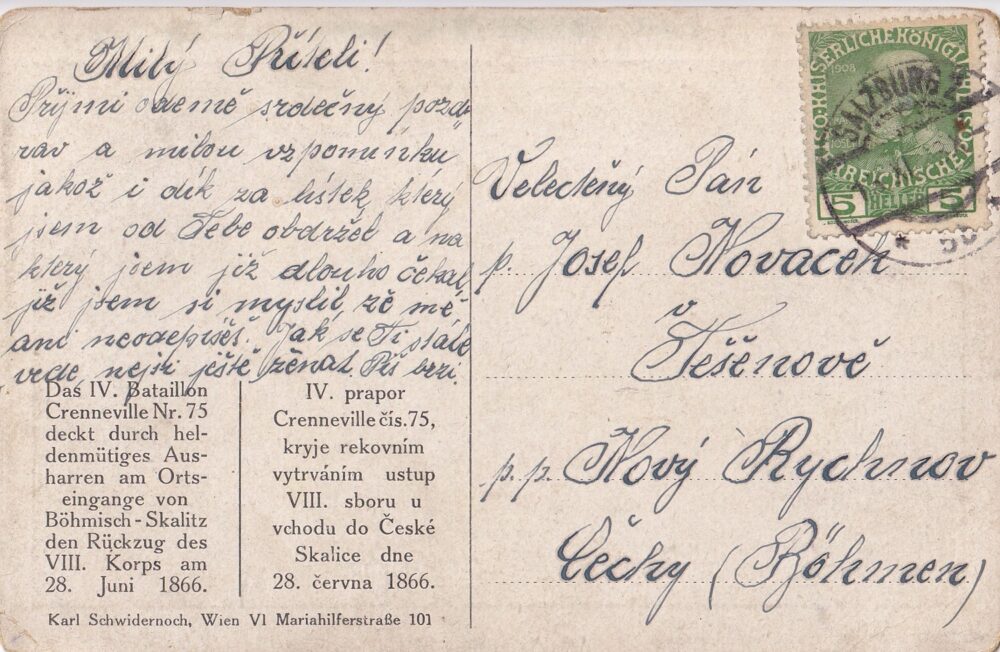 Milý Příteli!
Přijmi odemě srdečný pozd-
rav a milou vzpomínku
jakož i dík za lístek který
jsem od Tebe obdržel a na
který jsem již dlouho čekal
již jsem si myslil zě mě
ani neodepíšeš. Jak se Ti stále
vede, nejsi ještě ženat Piš brzi.
Das IV. Bataillon
Crenneville Nr. 75
deckt durch hel-
denmütiges Aus-
harren am Orts-
eingange von
Böhmisch-Skalitz
den Rückzug des
VIII. Korps am
28. Juni 1866.
IV. prapor
Crenneville čís. 75,
kryje rekovním
vytrváním ustup
VIII. sboru u
vchodu do České
Skalice dne
28. června 1866.
Karl Schwidernoch, Wien VI Mariahilferstraße 101
Velectěný Pán
p. Josef Novacek
v
Těšěnově
p.p. Nový Rychnov
Čechy (Böhmen)
1908
5 HELLER 5
SALZBURG 2